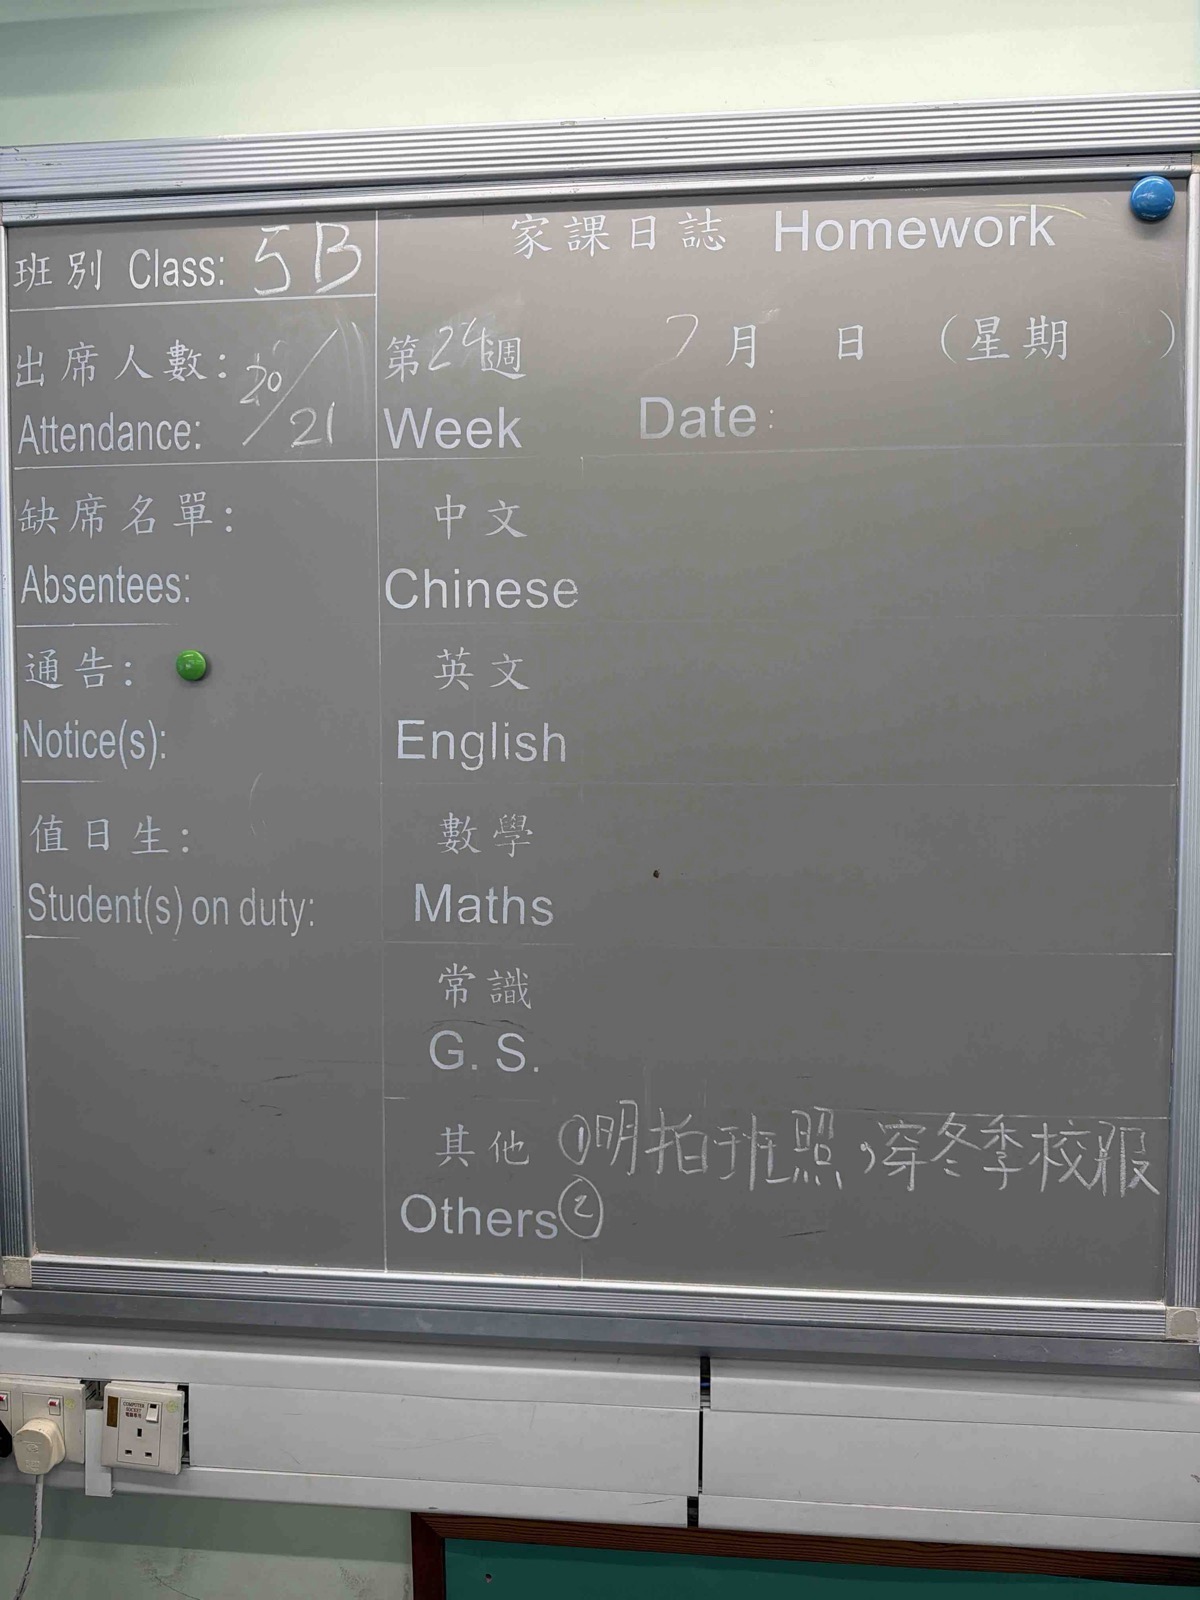 家課日誌 Homework
班別 Class: 5B
出席人數: 20/21
Attendance:
第24週 7月 日 (星期 )
Week Date:
缺席名單:
Absentees:
中文
Chinese
通告:
Notice(s):
英文
English
值日生:
Student(s) on duty:
數學
Maths
常識
G. S.
其他 ①明拍班照,穿冬季校服
Others ②
COMPUTER
SOCKET
電腦專用